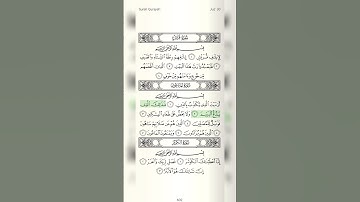 Surah Quraysh
Juz 30
سُورَةُ قُرَيْشٍ
بِسْمِ اللَّهِ الرَّحْمَٰنِ الرَّحِيمِ
لِإِيلَافِ قُرَيْشٍ ١ إِيلَافِهِمْ رِحْلَةَ الشِّتَاءِ وَالصَّيْفِ ٢
فَلْيَعْبُدُوا رَبَّ هَٰذَا الْبَيْتِ ٣ الَّذِي أَطْعَمَهُم
مِّن جُوعٍ وَآمَنَهُم مِّنْ خَوْفٍ ٤
سُورَةُ المَاعُونِ
بِسْمِ اللَّهِ الرَّحْمَٰنِ الرَّحِيمِ
أَرَأَيْتَ الَّذِي يُكَذِّبُ بِالدِّينِ ١ فَذَٰلِكَ الَّذِي
يَدُعُّ الْيَتِيمَ ٢ وَلَا يَحُضُّ عَلَىٰ طَعَامِ الْمِسْكِينِ ٣
فَوَيْلٌ لِّلْمُصَلِّينَ ٤ الَّذِينَ هُمْ عَن صَلَاتِهِمْ سَاهُونَ ٥
الَّذِينَ هُمْ يُرَاءُونَ ٦ وَيَمْنَعُونَ الْمَاعُونَ ٧
سُورَةُ الكَوْثَرِ
بِسْمِ اللَّهِ الرَّحْمَٰنِ الرَّحِيمِ
إِنَّا أَعْطَيْنَاكَ الْكَوْثَرَ ١ فَصَلِّ لِرَبِّكَ وَانْحَرْ ٢
إِنَّ شَانِئَكَ هُوَ الْأَبْتَرُ ٣